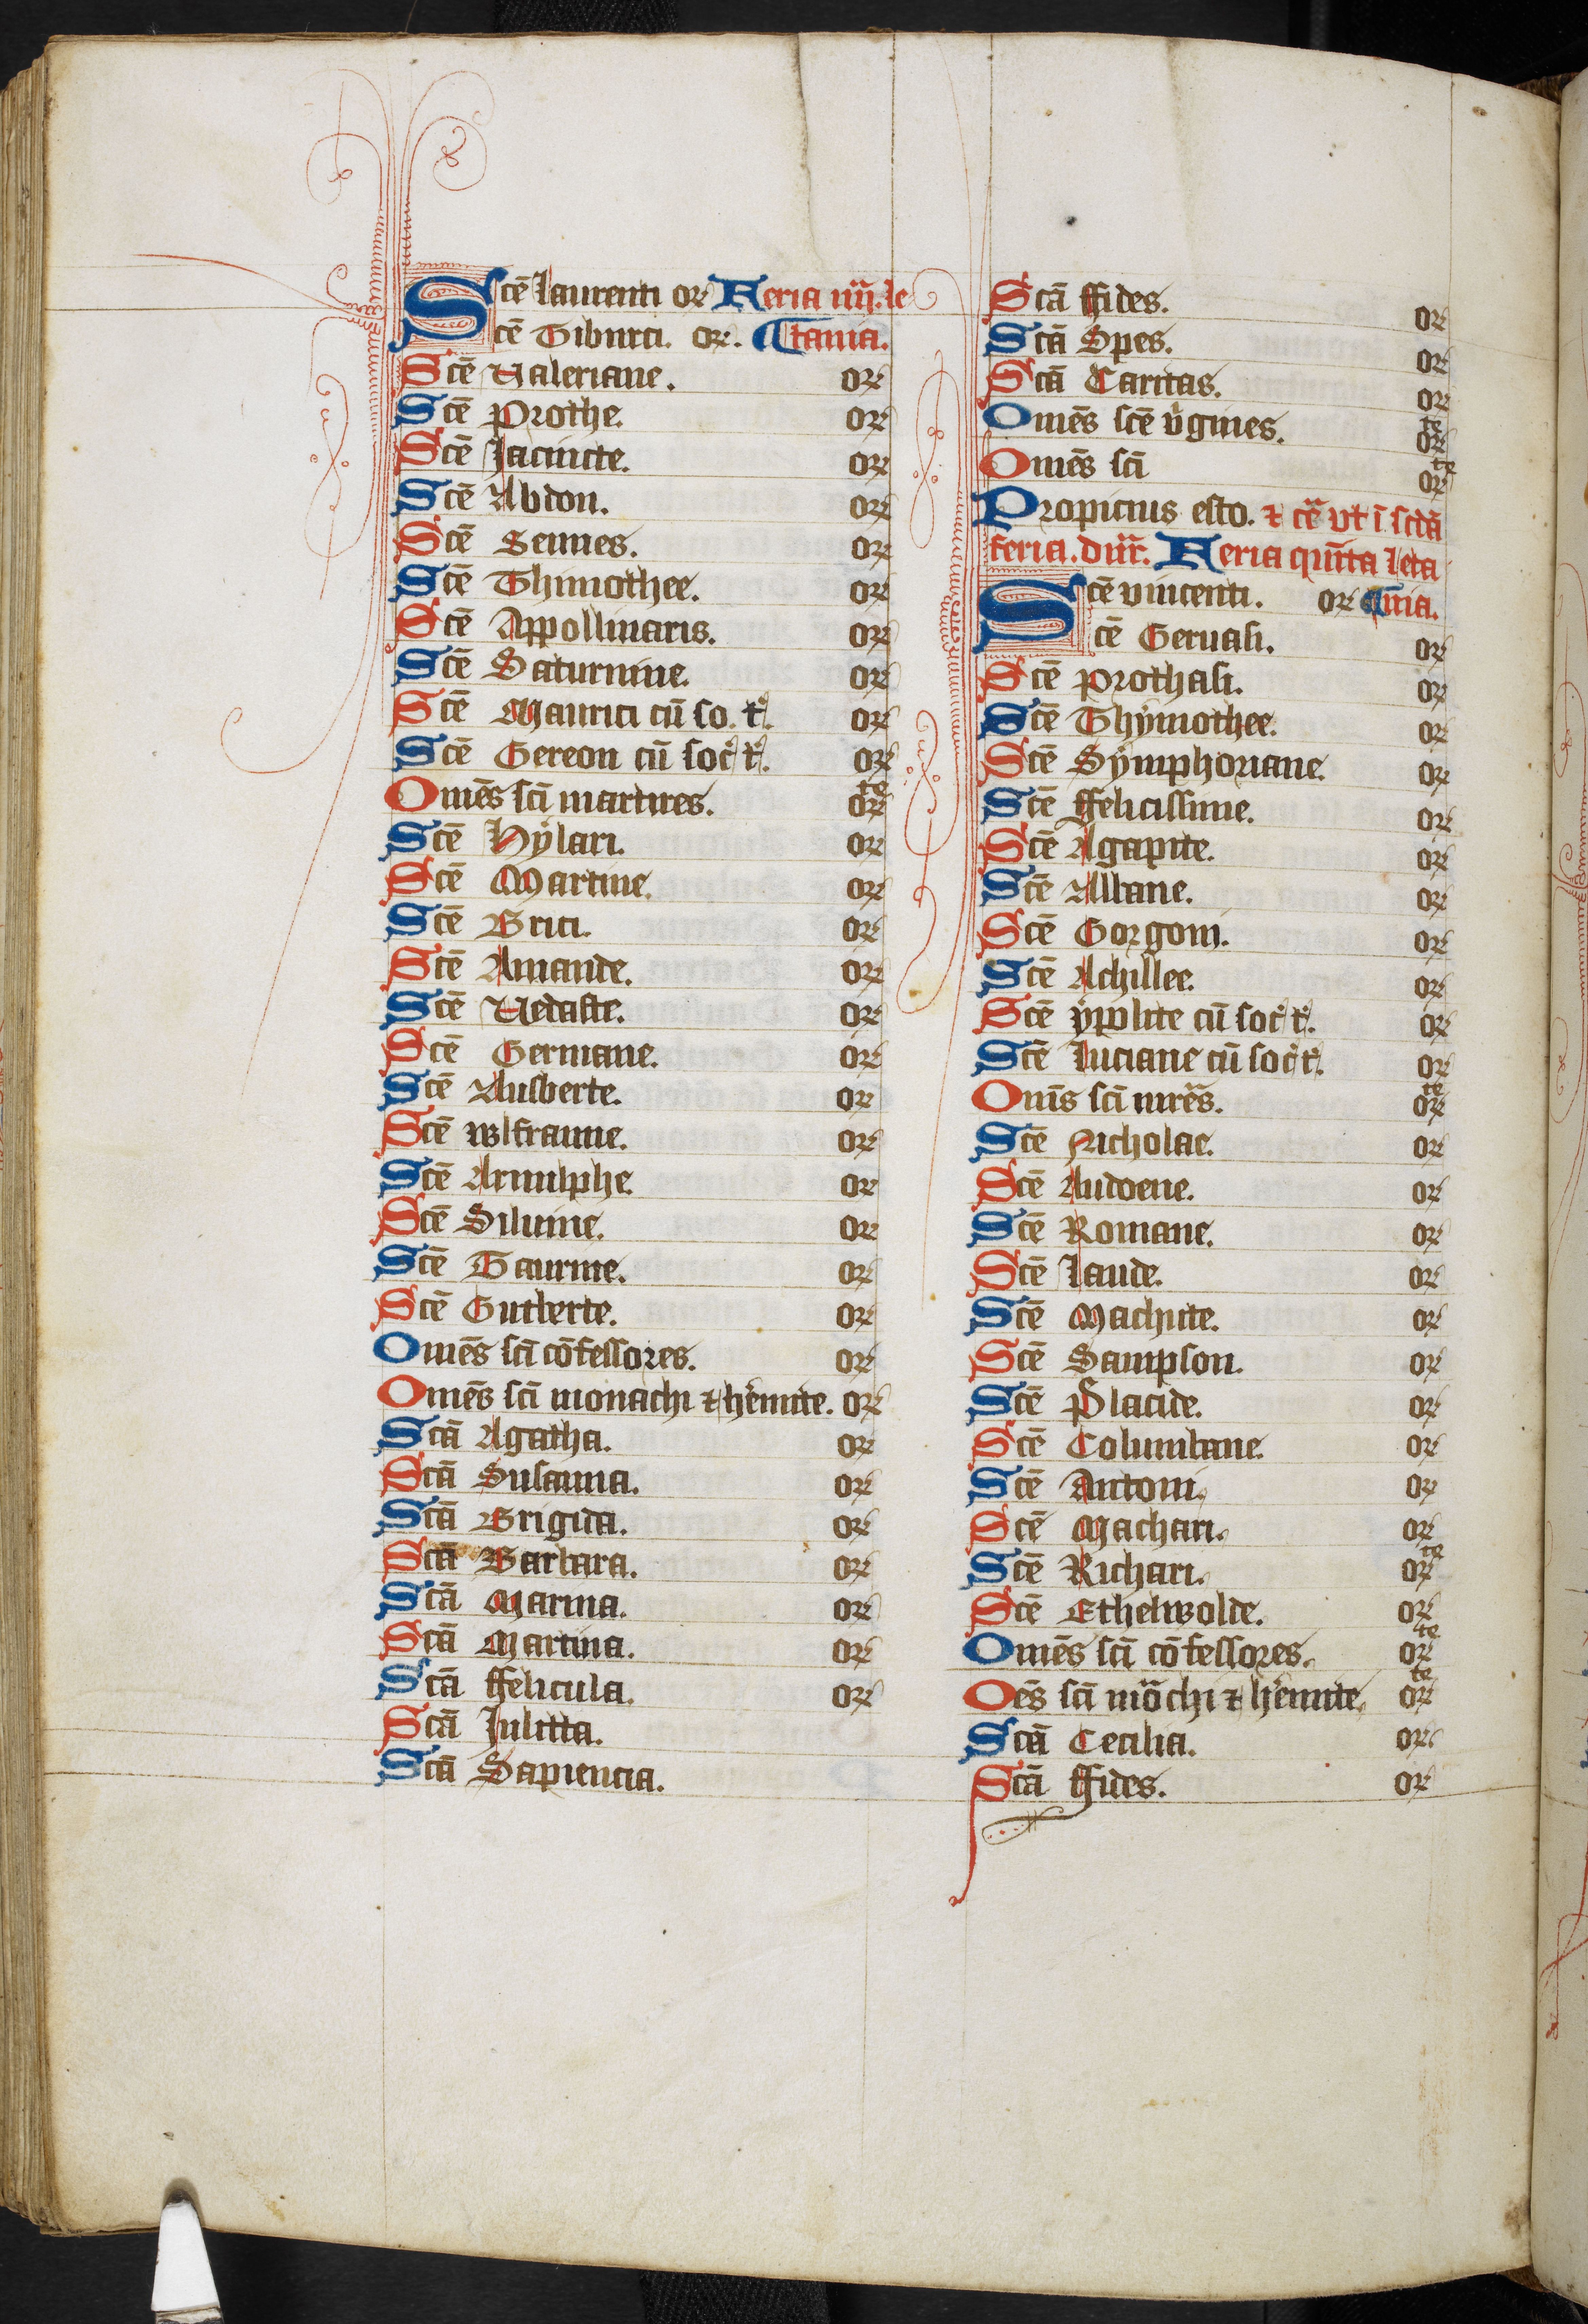 Scē laurenti or Feria iiij. le
Scē Tiburci. or. tania.
Scē Ualeriane. or
Scē Prothe. or
Scē Iacincte. or
Scē Abdon. or
Scē Sennes. or
Scē Thimothee. or
Scē Appollinaris. or
Scē Saturnine. or
Scē Maurici cū so. t. or
Scē Gereon cū soc t. or
Omēs scī martires. orte
Scē Hÿlari. or
Scē Martine. or
Scē Brici. or
Scē Amande. or
Scē Uedaste. or
Scē Germane. or
Scē Ausberte. or
Scē wlfranne. or
Scē Arnulphe. or
Scē Siluine. or
Scē Taurine. or
Scē Gutberte. or
Omēs scī cōfessores. or
Omēs scī monachi ⁊ hēmite. or
Scā Agatha. or
Scā Susanna. or
Scā Brigida. or
Scā Barbara. or
Scā Marina. or
Scā Martina. or
Scā ffelicula. or
Scā Iulitta.
Scā Sapiencia.
Scā ffides. or
Scā Spes. or
Scā Caritas. or
Omēs scē v̄gines. orte
Omēs scī orte
Propicius esto. ⁊ cē vt ī scdā
feria. dūr. Feria quīta leta
Scē vincenti. or nia.
Scē Geruasi. or
Scē Prothasi. or
Scē Thÿmothee. or
Scē Sÿmphoriane. or
Scē ffelicissime. or
Scē Agapite. or
Scē Albane. or
Scē Gorgoni. or
Scē Achillee. or
Scē ÿpolite cū soc t. or
Scē Luciane cū soc t. or
Omīs scī mrēs. orte
Scē Nicholae. or
Scē Audoene. or
Scē Romane. or
Scē Laude. or
Scē Machute. or
Scē Sampson. or
Scē Placide. or
Scē Columbane. or
Scē Antoni. or
Scē Machari. or
Scē Richari. orte
Scē Ethelwolde. or
Omēs scī cōfessores. orte
Oēs scī mōchi ⁊ hēmite. orte
Scā Cecilia. or
Scā ffides. or